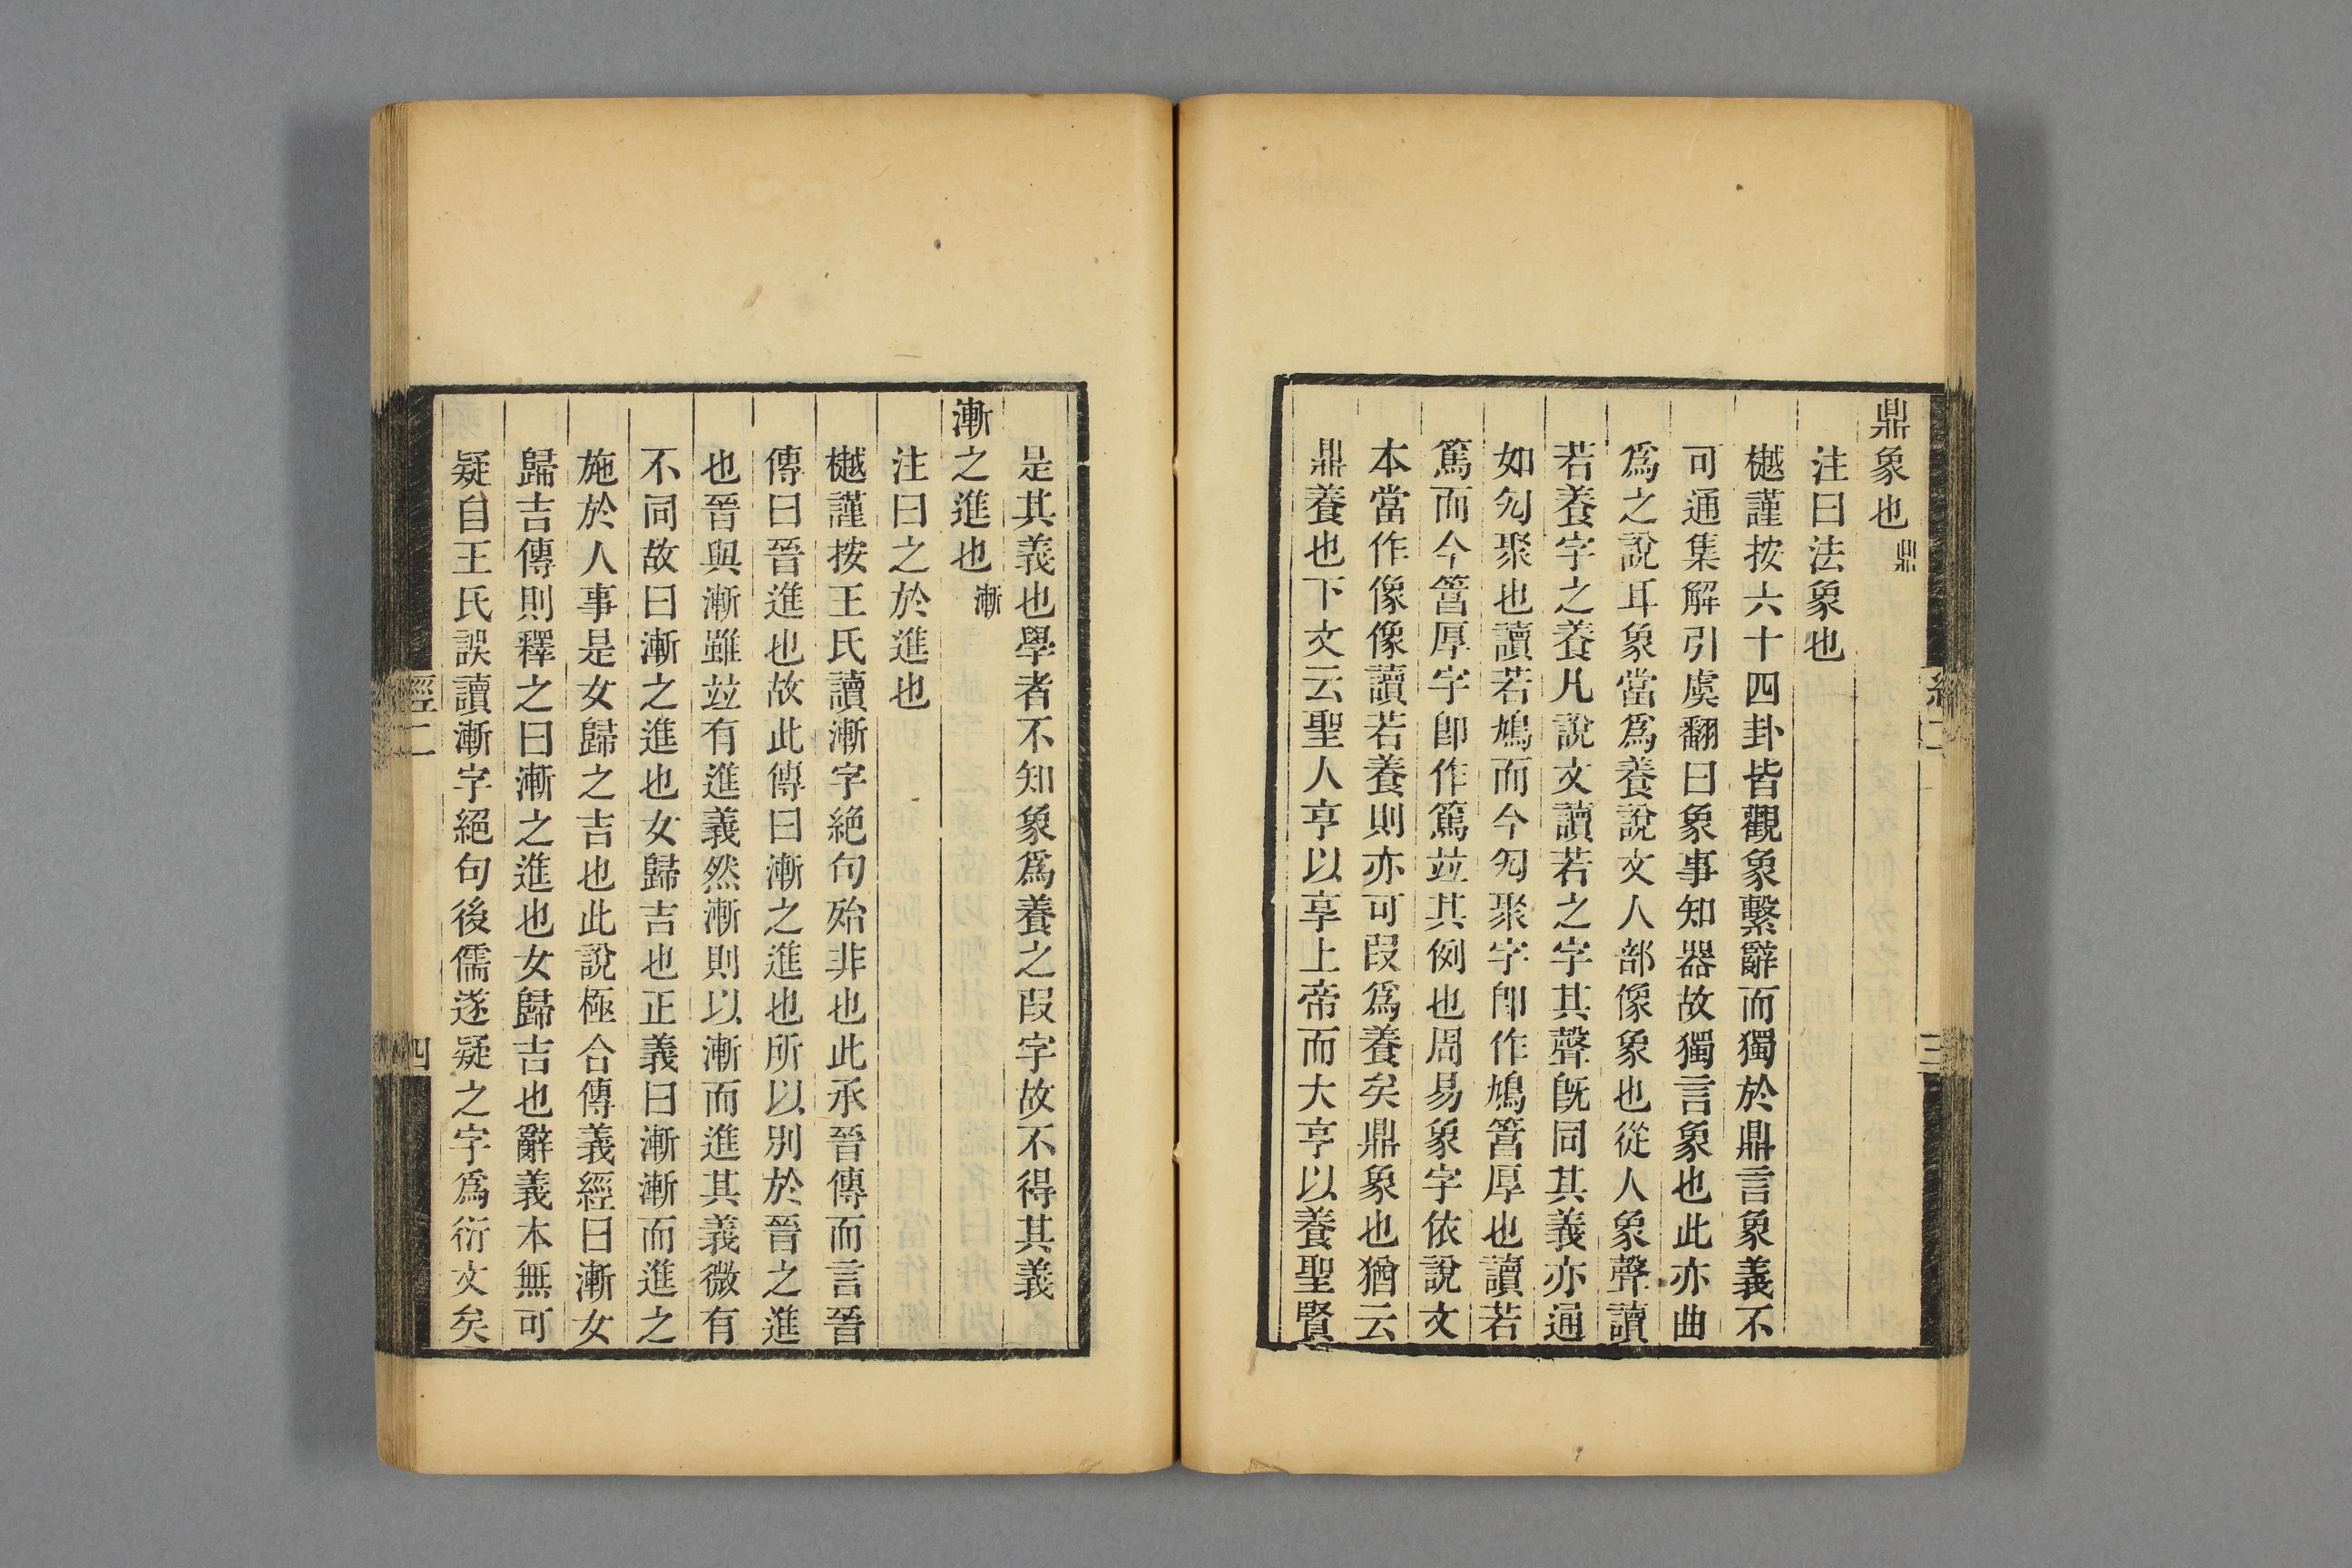 鼎象也鼎
注曰法象也
樾謹按六十四卦皆觀象繫辭而獨於鼎言象義不
可通集解引虞翻曰象事知器故獨言象也此亦曲
爲之說耳象當爲養說文人部像象也從人象聲讀
若養字之養凡說文讀若之字其聲旣同其義亦通
如勼聚也讀若鳩而今勼聚字卽作鳩篤厚也讀若
篤而今篤厚字卽作篤竝其例也周易象字依說文
本當作像像讀若養則亦可叚爲養矣鼎象也猶云
鼎養也下文云聖人亨以享上帝而大亨以養聖賢
是其義也學者不知象爲養之叚字故不得其義
漸之進也漸
注曰之於進也
樾謹按王氏讀漸字絕句殆非也此承晉傳而言晉
傳曰晉進也故此傳曰漸之進也所以別於晉之進
也晉與漸雖竝有進義然漸則以漸而進其義微有
不同故曰漸之進也女歸吉也正義曰漸漸而進之
施於人事是女歸之吉也此說極合傳義經曰漸女
歸吉傳則釋之曰漸之進也女歸吉也辭義本無可
疑自王氏誤讀漸字絕句後儒遂疑之字爲衍文矣
經二
四
三